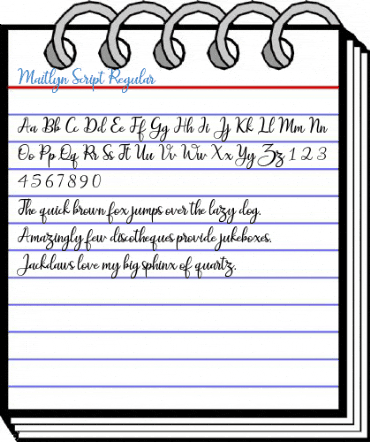 Maitlyn Script Regular
Aa Bb Cc Dd Ee Ff Gg Hh Ii Jj Kk Ll Mm Nn
Oo Pp Qq Rr Ss Tt Uu Vv Ww Xx Yy Zz 1 2 3
4 5 6 7 8 9 0
The quick brown fox jumps over the lazy dog.
Amazingly few discotheques provide jukeboxes.
Jackdaws love my big sphinx of quartz.